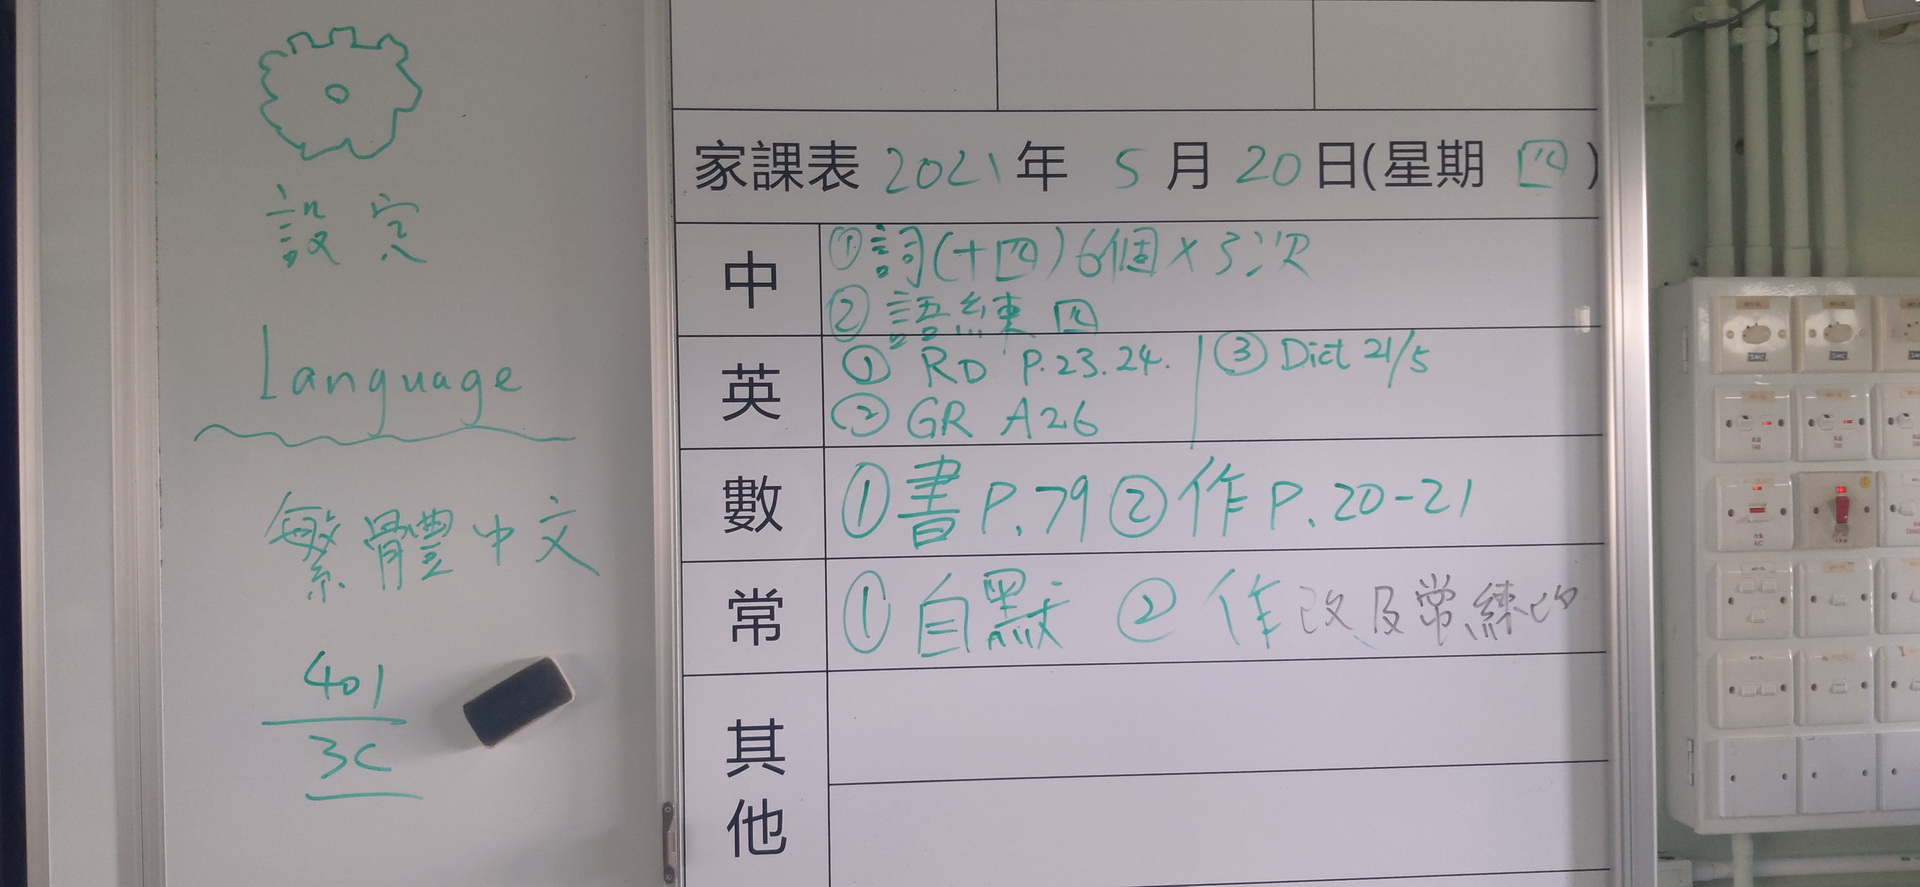 設定
Language
繁體中文
401
3C
家課表 2021年 5月20日(星期 四)
中
①詞(十四)6個×3次
② 語練 四
英
① RD P.23.24.
② GR A26
③ Dict 21/5
數
①書P.79 ②作P.20-21
常
① 自默 ② 作改及常練改
其他